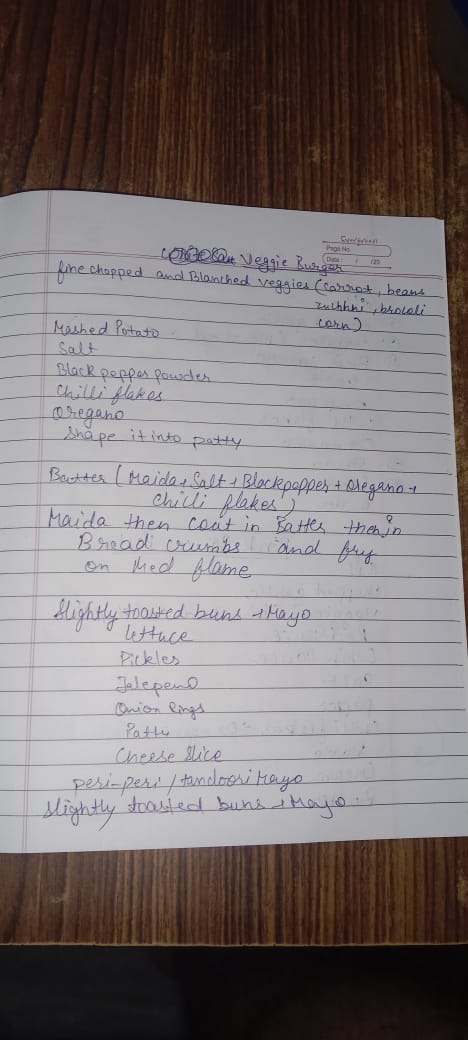 Sundaram
Page No.
Date / /20
Veggie Burger
fine chopped and Blanched veggies (carrot, beans
zuchhni, brocali
corn)
Mashed Potato
Salt
Black pepper powder
Chilli flakes
Oregano
Shape it into patty
Batter (Maida + Salt + Blackpepper + Oregano +
chilli flakes)
Maida then coat in Batter then in
Bread crumbs and fry
on Med flame
Slightly toasted buns + Mayo
lettuce
Pickles
Jalepeno
Onion Rings
Patty
Cheese Slice
peri-peri / tandoori Mayo
Slightly toasted buns + Mayo.